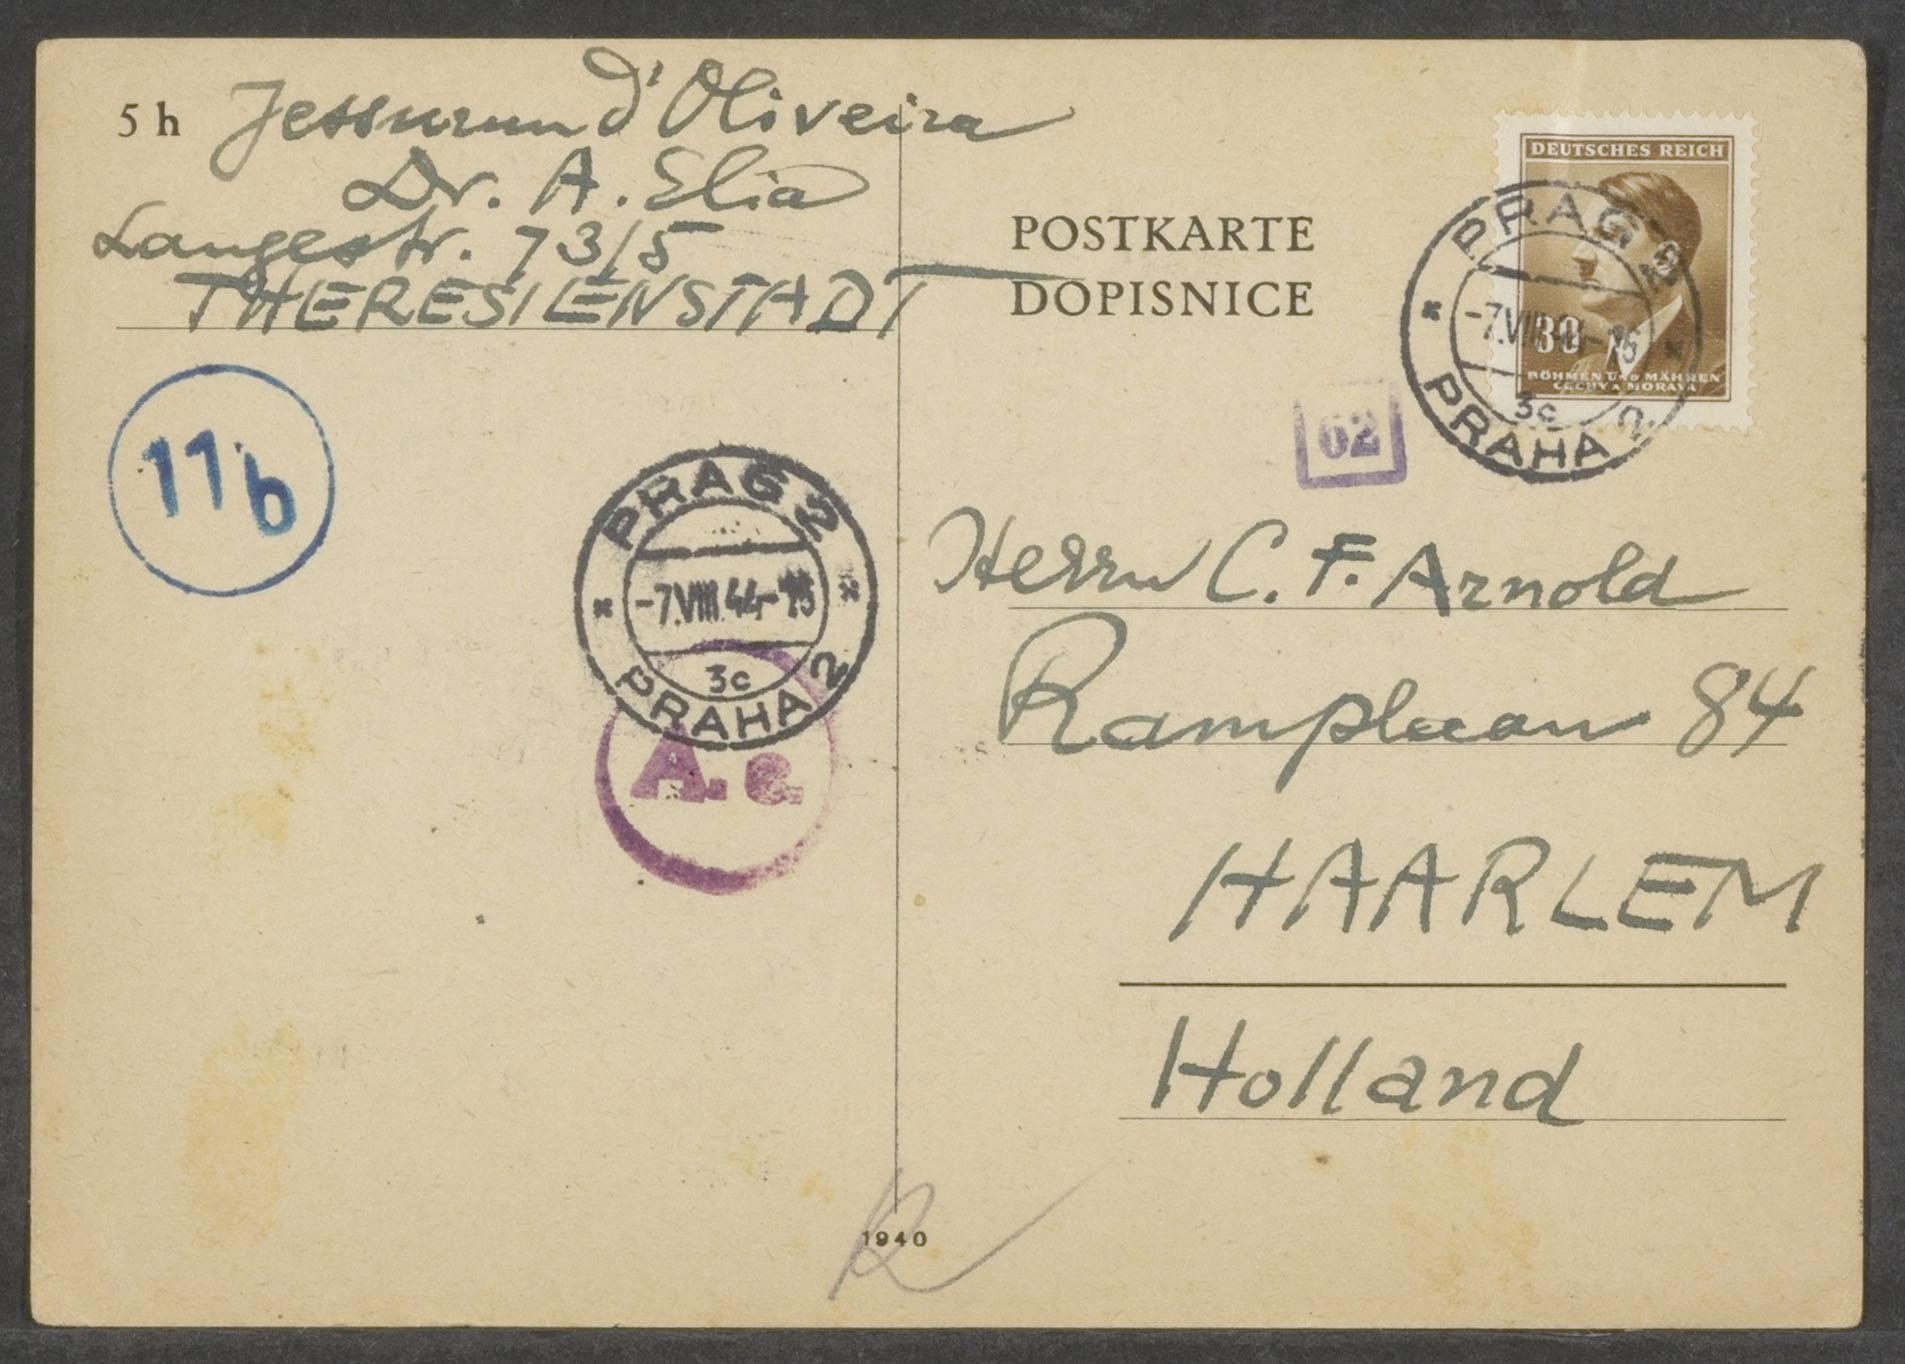 5 h
Jessurun d'Oliveira
Dr. A. Elia
Langestr. 73/5
THERESIENSTADT
POSTKARTE
DOPISNICE
DEUTSCHES REICH
30
BÖHMEN UND MÄHREN
ČECHY A MORAVA
PRAG 2
-7.VIII.44-
3c
PRAHA 2
62
11b
PRAG 2
-7.VIII.44-
3c
PRAHA 2
A.e.
Herrn C. F. Arnold
Ramplaan 84
HAARLEM
Holland
1940